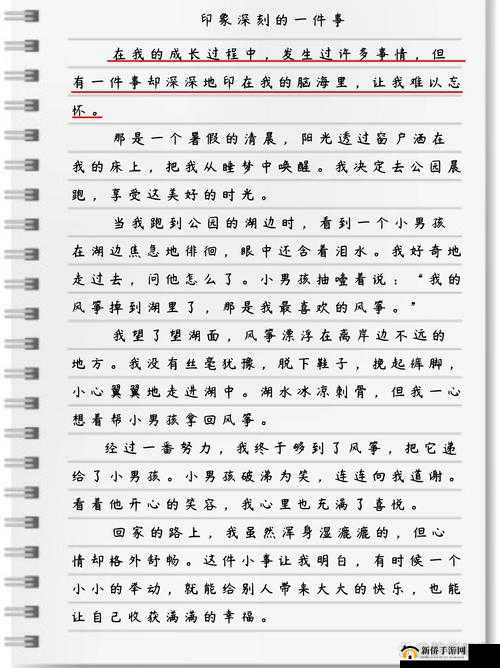 印象深刻的一件事
在我的成长过程中，发生过许多事情，但
有一件事却深深地印在我的脑海里，让我难以忘
怀。
那是一个暑假的清晨，阳光透过窗户洒在
我的床上，把我从睡梦中唤醒。我决定去公园晨
跑，享受这美好的时光。
当我跑到公园的湖边时，看到一个小男孩
在湖边焦急地徘徊，眼中还含着泪水。我好奇地
走过去，问他怎么了。小男孩抽噎着说：“我的
风筝掉到湖里了，那是我最喜欢的风筝。”
我望了望湖面，风筝漂浮在离岸边不远的
地方。我没有丝毫犹豫，脱下鞋子，挽起裤脚，
小心翼翼地走进湖中。湖水冰凉刺骨，但我一心
想着帮小男孩拿回风筝。
经过一番努力，我终于够到了风筝，把它递
给了小男孩。小男孩破涕为笑，连连向我道谢。
看着他开心的笑容，我心里也充满了喜悦。
回家的路上，我虽然浑身湿漉漉的，但心
情却格外舒畅。这件小事让我明白，有时候一个
小小的举动，就能给别人带来大大的快乐，也能
让自己收获满满的幸福。
新侨手游网